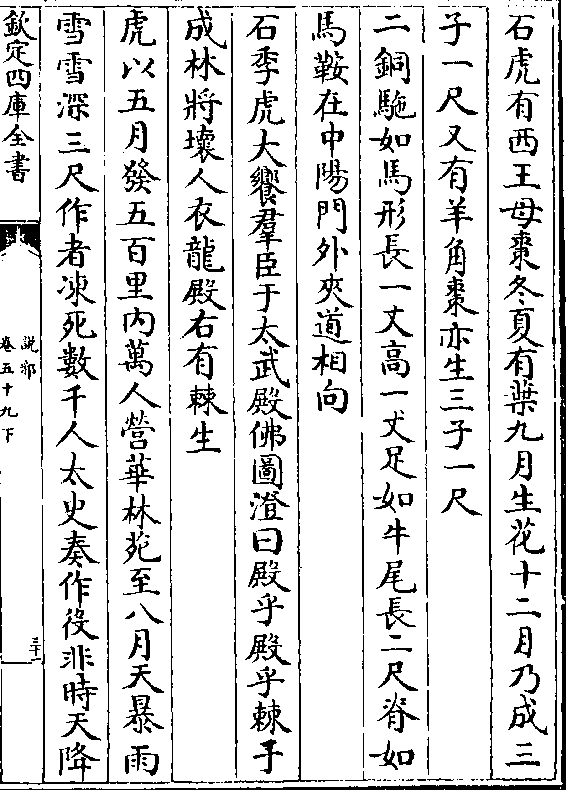 石虎有西王母棗冬夏有葉九月生花十二月乃成三
子一尺又有羊角棗亦生三子一尺
二銅駞如馬形長一丈高一丈足如牛尾長二尺脊如
馬鞍在中陽門外夾道相向
石季虎大饗羣臣于太武殿佛圖澄曰殿乎殿乎棘子
成林將壞人衣龍殿右有棘生
虎以五月發五百里内萬人營華林苑至八月天暴雨
雪雪深三尺作者凍死數千人太史奏作役非時天降
欽定四庫全書
說郛
卷五十九下
三十一